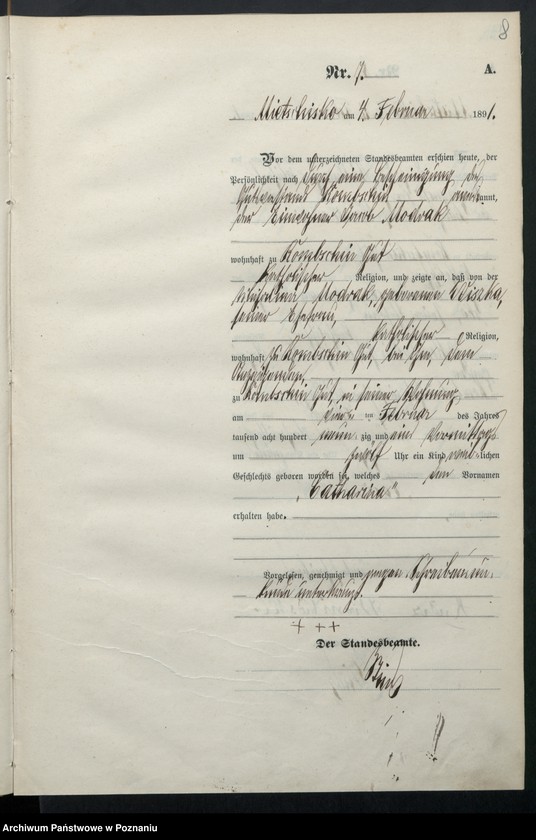 8
Nr. 7. A.
Mietschisko am 4 Februar 1891.
Vor dem unterzeichneten Standesbeamten erschien heute, der
Persönlichkeit nach durch eine Bescheinigung des
Gutsvorstands Rombschin anerkannt,
der Einwohner Jacob Modrak
wohnhaft zu Rombschin Gut
katholischer Religion, und zeigte an, daß von der
Modrak, geborenen
seiner Ehefrau,
katholischer Religion,
wohnhaft zu Rombschin Gut, bei ihm, dem
Anzeigenden,
zu Rombschin Gut, in seiner Wohnung
am ten Februar des Jahres
tausend acht hundert neun zig und ein Vormittags
um zwölf Uhr ein Kind weiblichen
Geschlechts geboren worden sei, welches den Vornamen
„Catharina"
erhalten habe.
Vorgelesen, genehmigt und wegen Schreibensun-
kunde unterkreuzt.
+ ++
Der Standesbeamte.
Archiwum Państwowe w Poznaniu